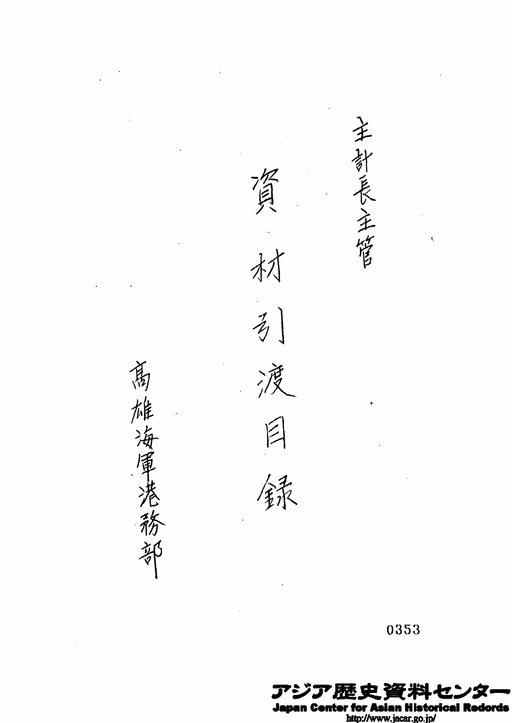 主計長主管
資材引渡目録
高雄海軍港務部
0353
アジア歴史資料センター
Japan Center for Asian Historical Records
http://www.jacar.go.jp/